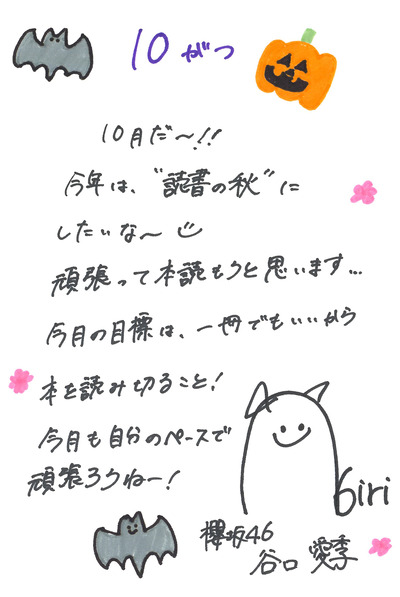 10がつ
10月だ〜!!
今年は、"読書の秋"に
したいな〜
頑張って本読もうと思います...
今月の目標は、一冊でもいいから
本を読み切ること!
今月も自分のペースで
頑張ろうねー!
6iri
欅坂46
谷口 愛季